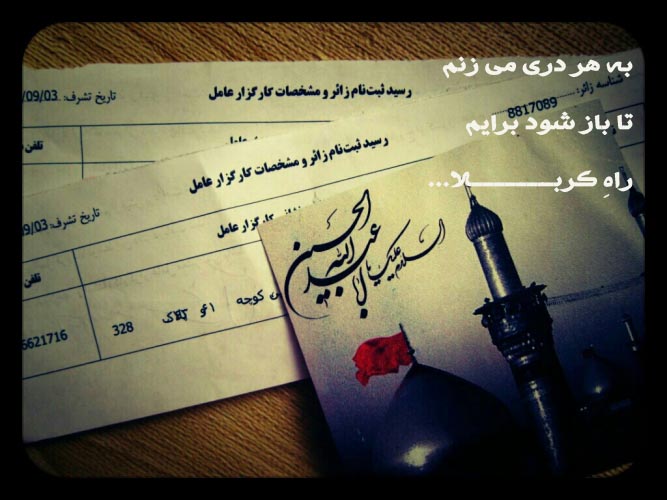 به هر دری می زنم
تا باز شود برایم
راهِ کربـــــــــلا...
رسید ثبت‌نام زائر و مشخصات کارگزار عامل
تاریخ تشرف: 09/03/
شناسه زائر: 8817089
تلفن
رسید ثبت‌نام زائر و مشخصات کارگزار عامل
تاریخ تشرف: 03/
کارگزار عامل
تلفن
کوچه
پلاک 328
6621716
السلام علیک یا
ابا عبدالله الحسین